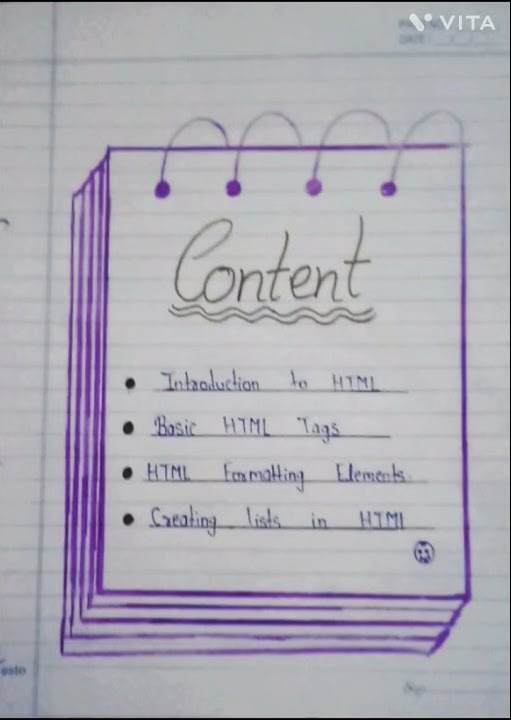 VITA
DATE
Content
Introduction to HTML
Basic HTML Tags
HTML Formatting Elements
Creating lists in HTML